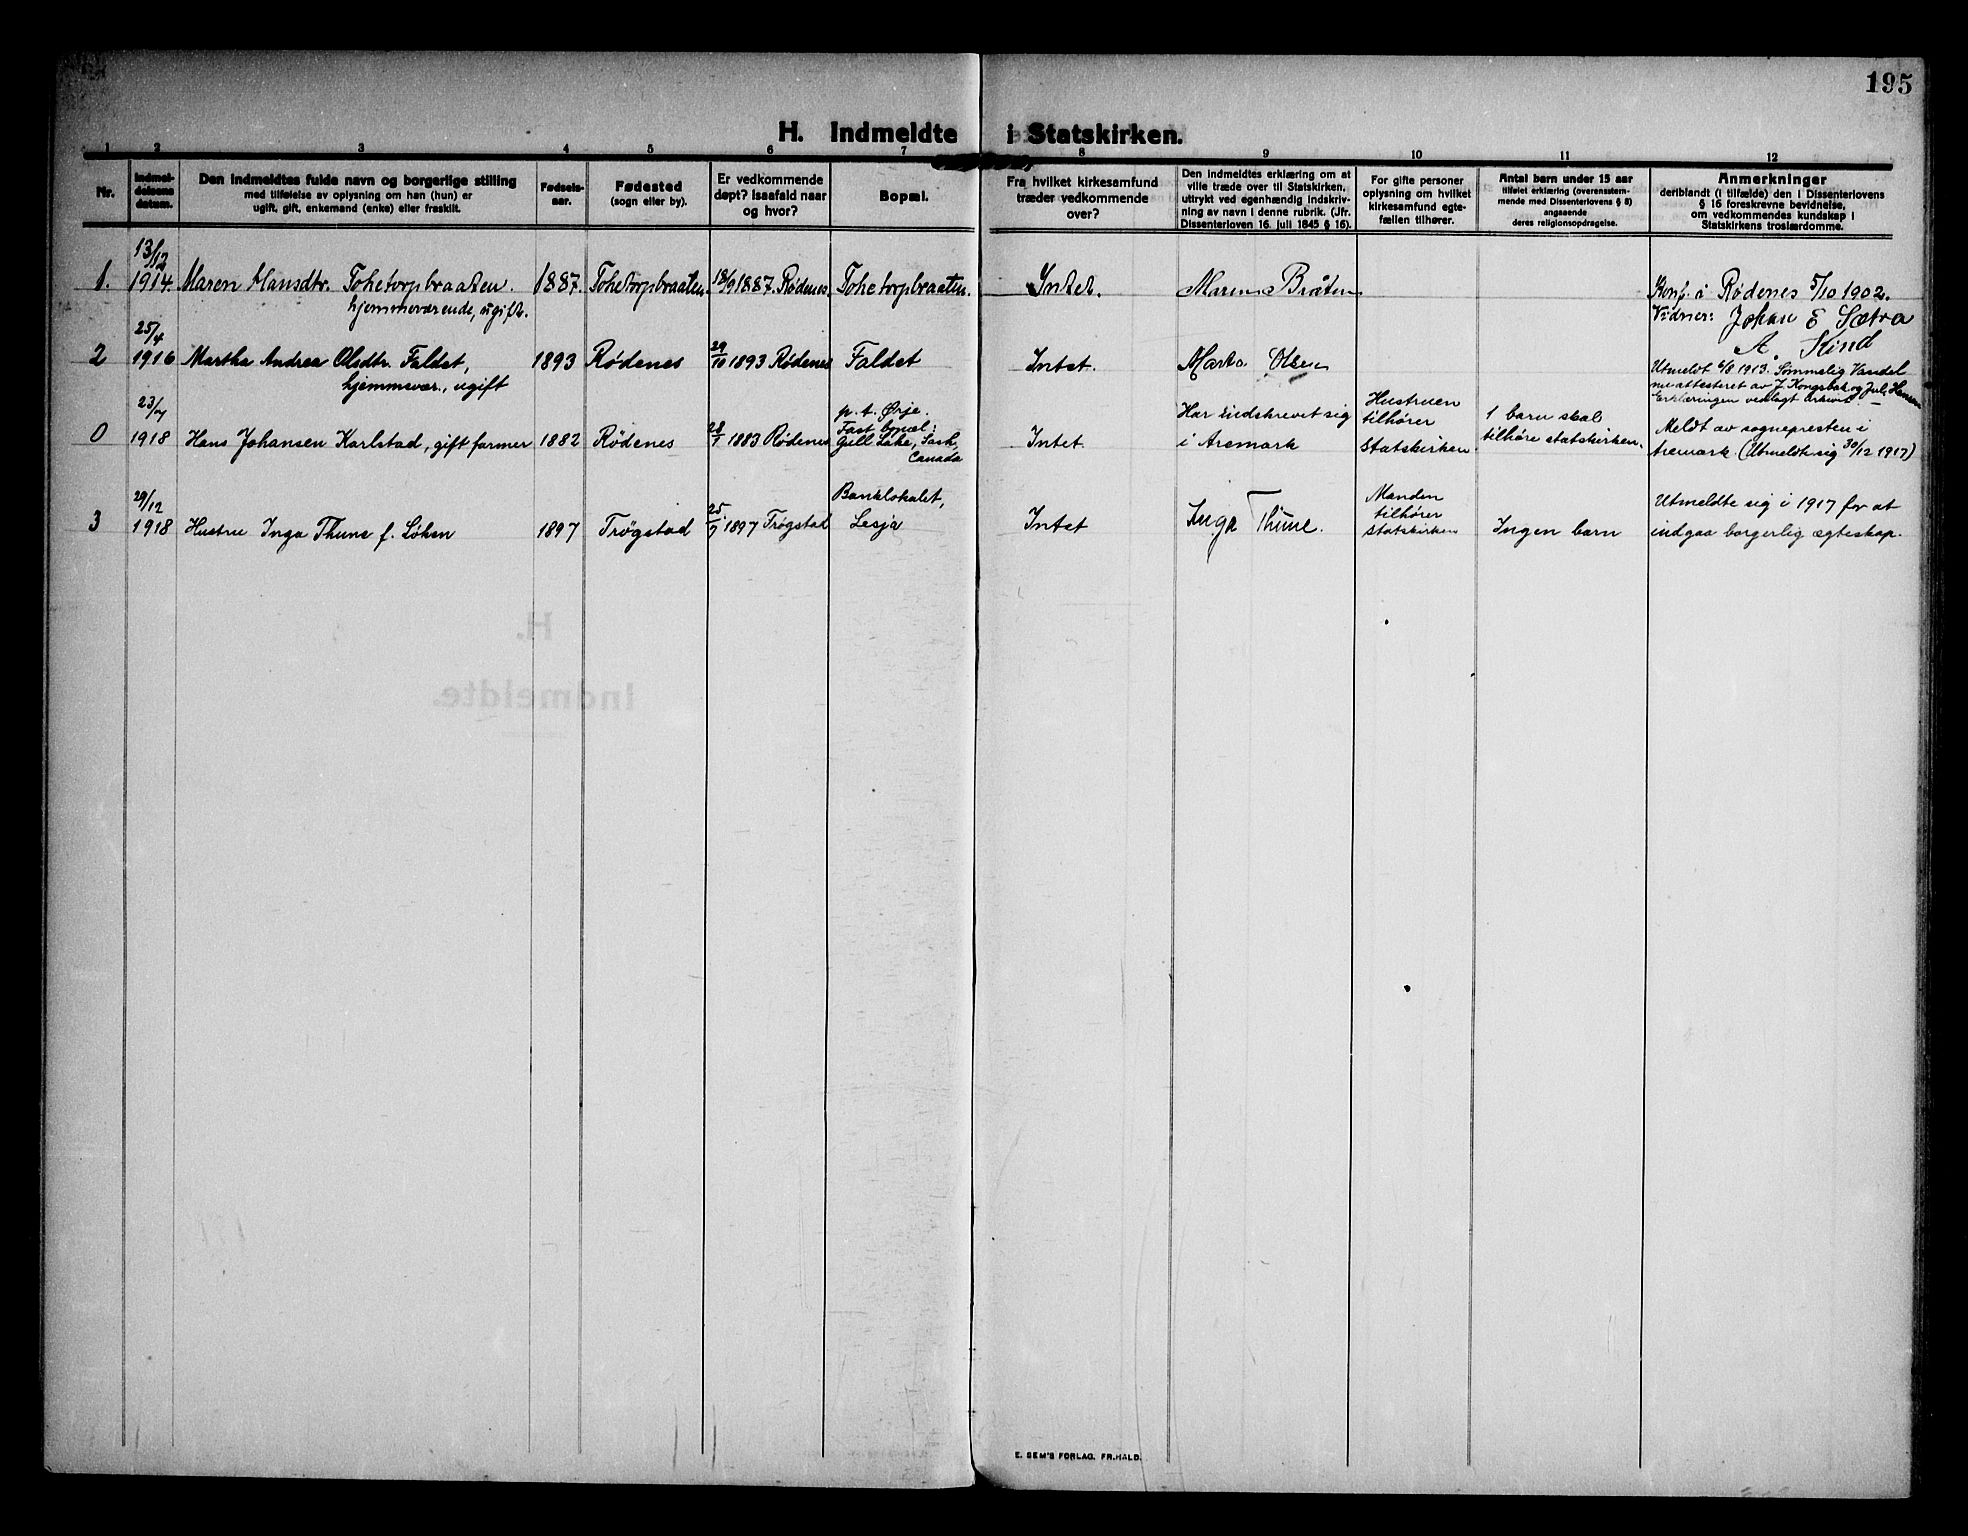 195
H. Indmeldte i Statskirken.
1 2 3 4 5 6 7 8 9 10 11 12
Nr.
Indmel-
delsens
datum.
Den indmeldtes fulde navn og borgerlige stilling
med tilføielse av oplysning om han (hun) er
ugift, gift, enkemand (enke) eller fraskilt.
Fødsels-
aar.
Fødested
(sogn eller by).
Er vedkommende
døpt? Isaafald naar
og hvor?
Bopæl.
Fra hvilket kirkesamfund
træder vedkommende
over?
Den indmeldtes erklæring om at
ville træde over til Statskirken,
uttrykt ved egenhændig indskriv-
ning av navn i denne rubrik. (Jfr.
Dissenterloven 16. juli 1845 § 16).
For gifte personer
oplysning om hvilket
kirkesamfund egte-
fællen tilhører.
Antal barn under 15 aar
tilføiet erklæring (overensstem-
mende med Dissenterlovens § 8)
angaaende
deres religionsopdragelse.
Anmerkninger
deriblandt (i tilfælde) den i Dissenterlovens
§ 16 foreskrevne bevidnelse,
om vedkommendes kundskap i
Statskirkens troslærdomme.
1.
13/12
1914.
Maren Hansdtr. Tohetorpbraaten.
hjemmeværende, ugift.
1887.
Tohetorpbraaten.
18/9 1887. Rødenes.
Tohetorpbraaten.
Intet.
Maren Bråten
Konf. i Rødenes 5/10 1902.
Vidner: Johan E Sætra
A. Kind
2
25/4
1916
Martha Andrea Olsdtr. Faldet,
hjemmevær., ugift
1893
Rødenes
29/10 1893 Rødenes
Faldet
Intet.
Marta Olsen
Utmeldt 6/8 1913. Sømmelig Vandel
nu attesteret av J. Kongsbak og Jul. Hansen
Erklæringen vedlagt arkivet.
0
23/7
1918
Hans Johansen Karlstad, gift farmer
1882
Rødenes
28/1 1883 Rødenes
p. t. Ørje.
Fast bopæl:
Gull Lake, Sask,
Canada
Intet
Har indskrevet sig
i Aremark
Hustruen
tilhører
Statskirken
1 barn skal
tilhøre statskirken.
Meldt av sognepresten i
Aremark. (Utmeldte sig 30/12 1917)
3
29/12
1918
Hustru Inga Thune f. Løken
1897
Trøgstad
25/7 1897 Trøgstad
Banklokalet,
Lesja
Intet
Inga Thune.
Manden
tilhører
statskirken
Ingen barn
Utmeldte sig i 1917 for at
indgaa borgerlig ægteskap.
H.
Indmeldte.
E. SEM'S FORLAG, FR.HALD.